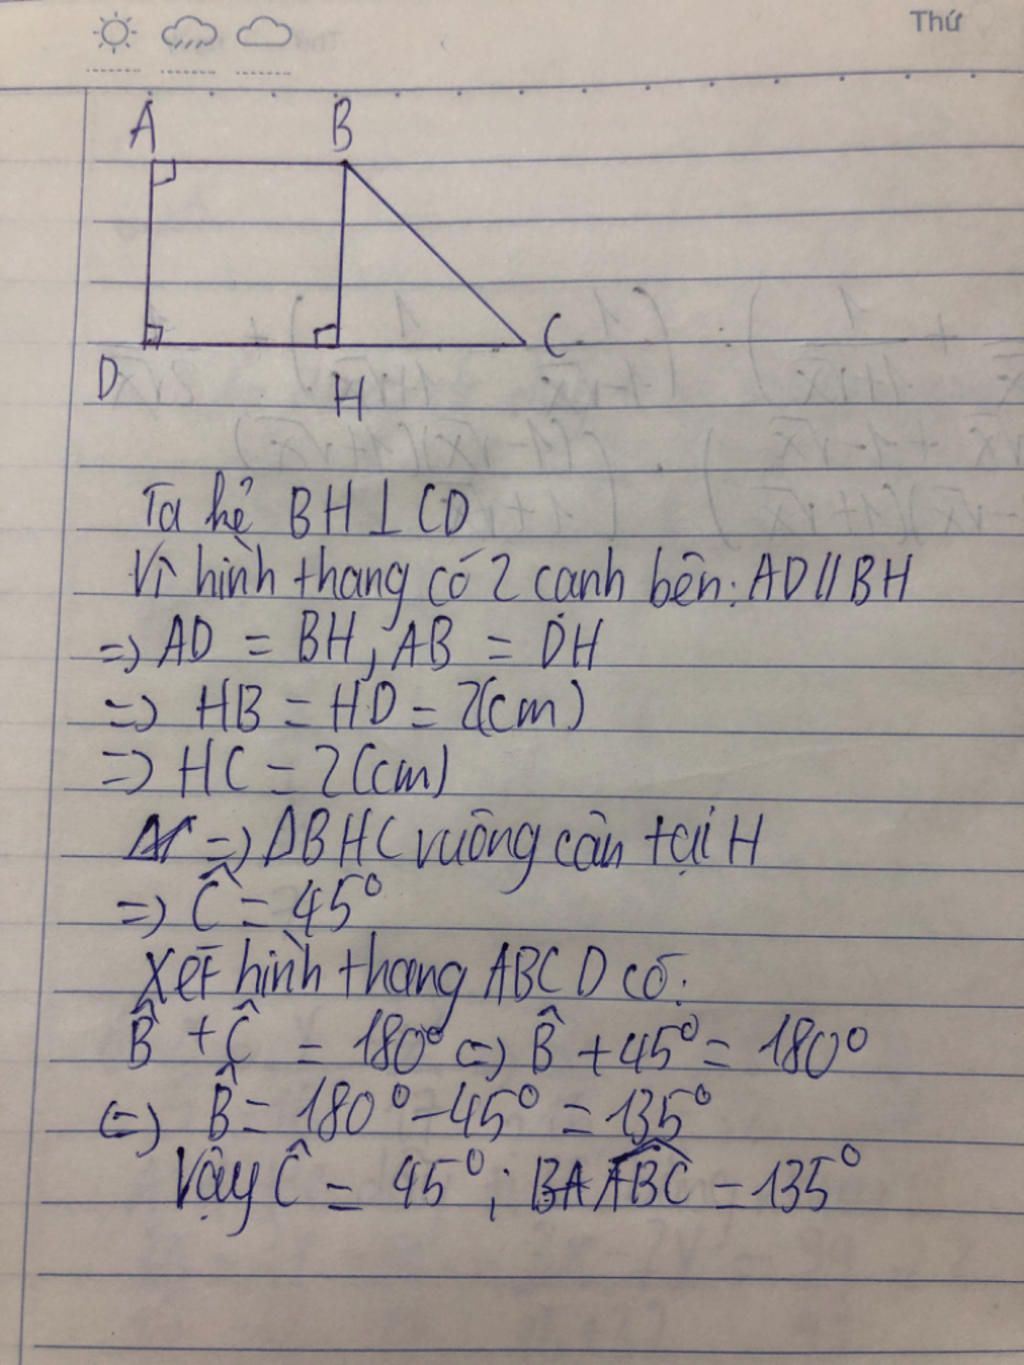 Thứ
A B
C
D
H
Ta kẻ BH ⊥ CD
Vì hình thang có 2 cạnh bên: AD // BH
=> AD = BH, AB = DH
=> HB = HD = 2(cm)
=> HC = 2(cm)
=> ΔBHC vuông cân tại H
=> Ĉ = 45°
Xét hình thang ABCD có:
B̂ + Ĉ = 180° <=> B̂ + 45° = 180°
<=> B̂ = 180° - 45° = 135°
Vậy Ĉ = 45°; BA ABC = 135°